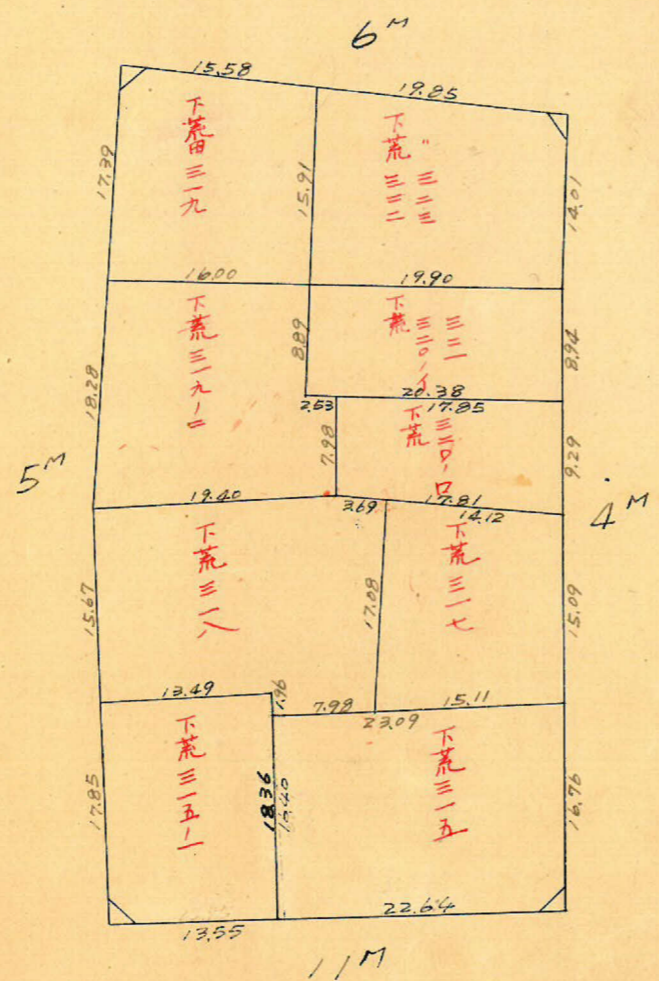 6M
15.58
19.85
下荒田三一九
下荒〃三二三
三二二
17.39
15.91
14.01
16.00
19.90
下荒三一九ノ二
下荒三二一
三二〇ノイ
18.28
8.89
8.94
20.38
2.53
17.85
下荒三二〇ノロ
7.98
9.29
5M
19.40
17.81
4M
3.69
14.12
下荒三一八
下荒三一七
15.67
17.08
15.09
13.49
1.96
7.98
15.11
23.09
下荒三一五ノ一
下荒三一五
17.85
18.36
16.40
16.76
22.64
13.55
11M